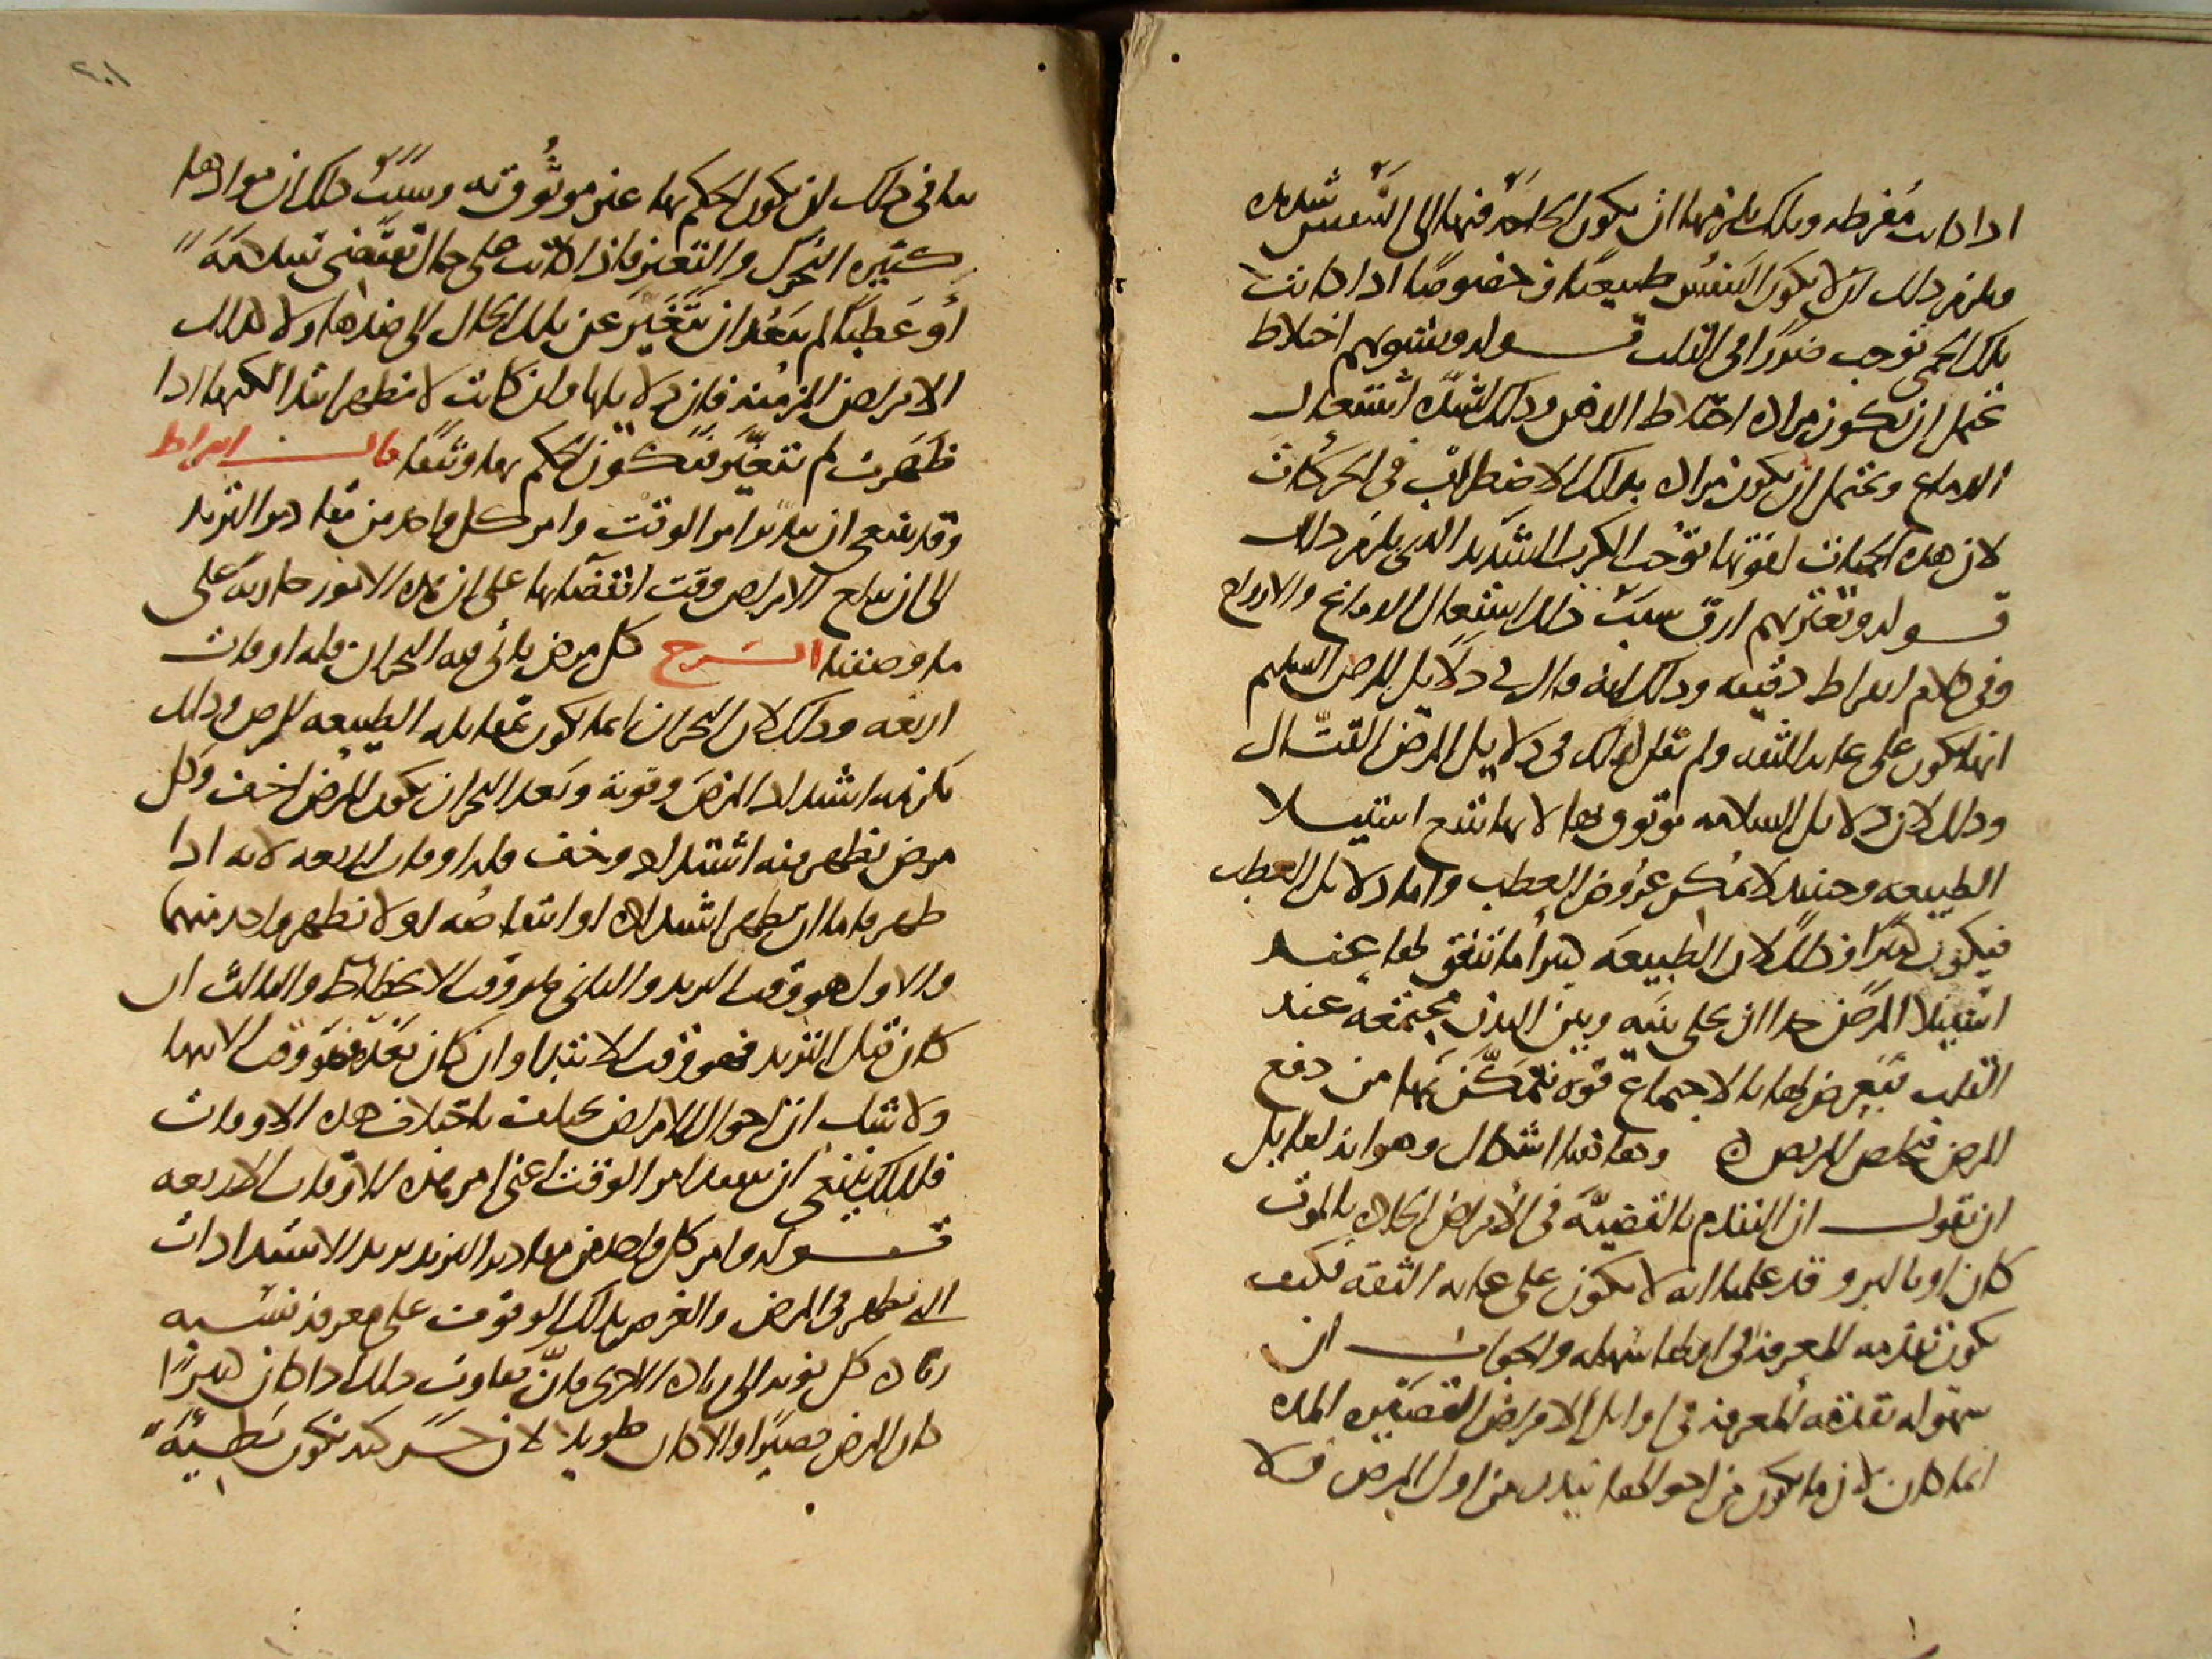 اذا كانت مفرطه وتلك يلزمها ان يكون الحاجه فيها الى التنفس شديده
ويلزم ذلك ان لا يكون التنفس طبيعيا وخصوصا اذا كانت
تلك الحمى توجب ضررا فى القلب قوله ويشوبهم اختلاط
يحتمل ان يكون مراده اختلاط الذهن وذلك لشدة اشتعال
الدماغ ويحتمل ان يكون مراده بذلك الاضطراب فى الحركات
لان هذه الحميات لقوتها توجب الكرب الشديد الذى يلزم ذلك
قوله ويعتريهم ارق سبب ذلك اشتعال الدماغ والارواح
وفى كلام ابقراط دقيقه وذلك انه قال فى دلايل المرض السليم
انها تكون على غايه الثقه ولم يقل ذلك فى دلايل المرض القتال
وذلك لان دلايل السلامه موثوق بها لانها تتبع استيلا
الطبيعه وحينيذ لا يمكن عروض العطب واما دلايل العطب
فيكون كثيرا وذلك لان الطبيعه كثيرا ما يتفق لها عند
استيلا المرض جدا ان تخلى بينه وبين البدن مجتمعة عند
القلب فيعرض لها بالاجتماع قوه تتمكن بها من دفع
المرض فيخلص المريض وهاهنا اشكال وهو ان لقايل
ان يقول ان التقدم بالقضية فى الامراض الحاده بالموت
كان او بالبرو قد علمنا انه لا يكون على غايه الثقه فكيف
يكون تقدمه المعرفه فى اوايلها سهله والجواب ان
سهوله تقدمه المعرفه فى اوايل الامراض القصيره المده
انما كان لان ما يكون من احوالها يتبدى من اول المرض فلا
٢٠١
ينافى ذلك ان يكون الحكم بها غير موثوق به وسبب ذلك ان موادها
كثيره التحرك والتغير فاذا كانت على حال تقتضى سلامة
او عطبا لم يبعد ان يتغير عن تلك الحال الى ضدها ولا كذلك
الامراض المزمنه فان دلايلها وان كانت لا تظهر ابتدا لكنها اذا
ظهرت لم تتغير فيكون الحكم بها وثيقا قال ابقراط
وقد ينبغى ان يتدبر امر الوقت وامر كل واحد من مقادير التزيد
الى ان يبلغ الامراض وقت انقضايها على ان هذه الامور جاريه على
ما وصفنا الشرح كل مرض ياتى فيه البحران فله اوقات
اربعه وذلك لان البحران انما يكون بمقابله الطبيعه للمرض وذلك
يلزمه اشتداد المرض وقوته وبعد البحران يكون المرض اخف وكل
مرض يظهر منه اشتداد وخف فله اوقات اربعه لانه اذا
ظهر فاما ان يظهر اشتداده او انتقاصه او لا يظهر واحد منهما
والاول هو وقت التزيد والثانى هو وقت الانحطاط والثالث ان
كان قبل التزيد فهو وقت الابتدا وان كان بعده فهو وقت الانتها
ولا شك ان احوال الامراض تختلف باختلاف هذه الاوقات
فلذلك ينبغى ان يتفقد امر الوقت اعنى امر هذه الاوقات الاربعه
قوله وامر كل واحد من مقادير التزيد يريد الاشتدادات
التى تظهر فى المرض والغرض بذلك الوقوف على معرفه نسبه
زياده كل نوبه الى زياده الاخرى فان تفاوت ذلك اذا كان كثيرا
كان المرض قصيرا والا كان طويلا لان حركته تكون بطيئة